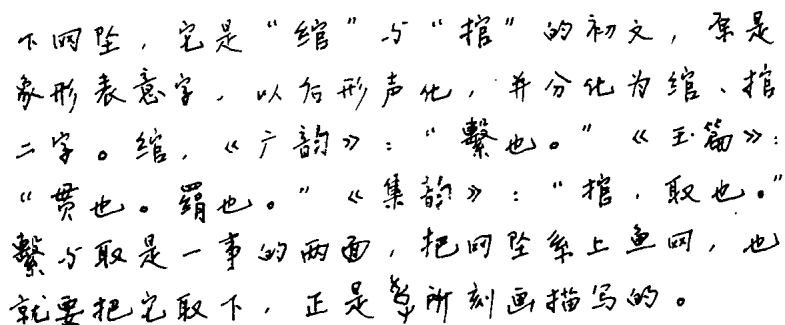 下网坠，它是“绾”与“捾”的初文，原是
象形表意字，以后形声化，并分化为绾、捾
二字。绾，《广韵》：“繫也。”《玉篇》：
“贯也。羂也。”《集韵》：“捾，取也。”
繫与取是一事的两面，把网坠系上鱼网，也
就要把它取下，正是所刻画描写的。